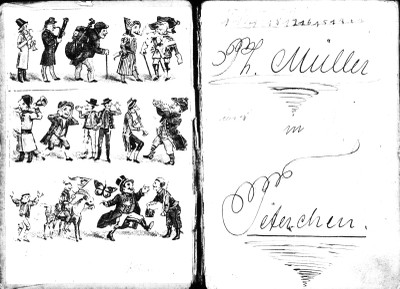 Ph. Müller
in
Teterchen.